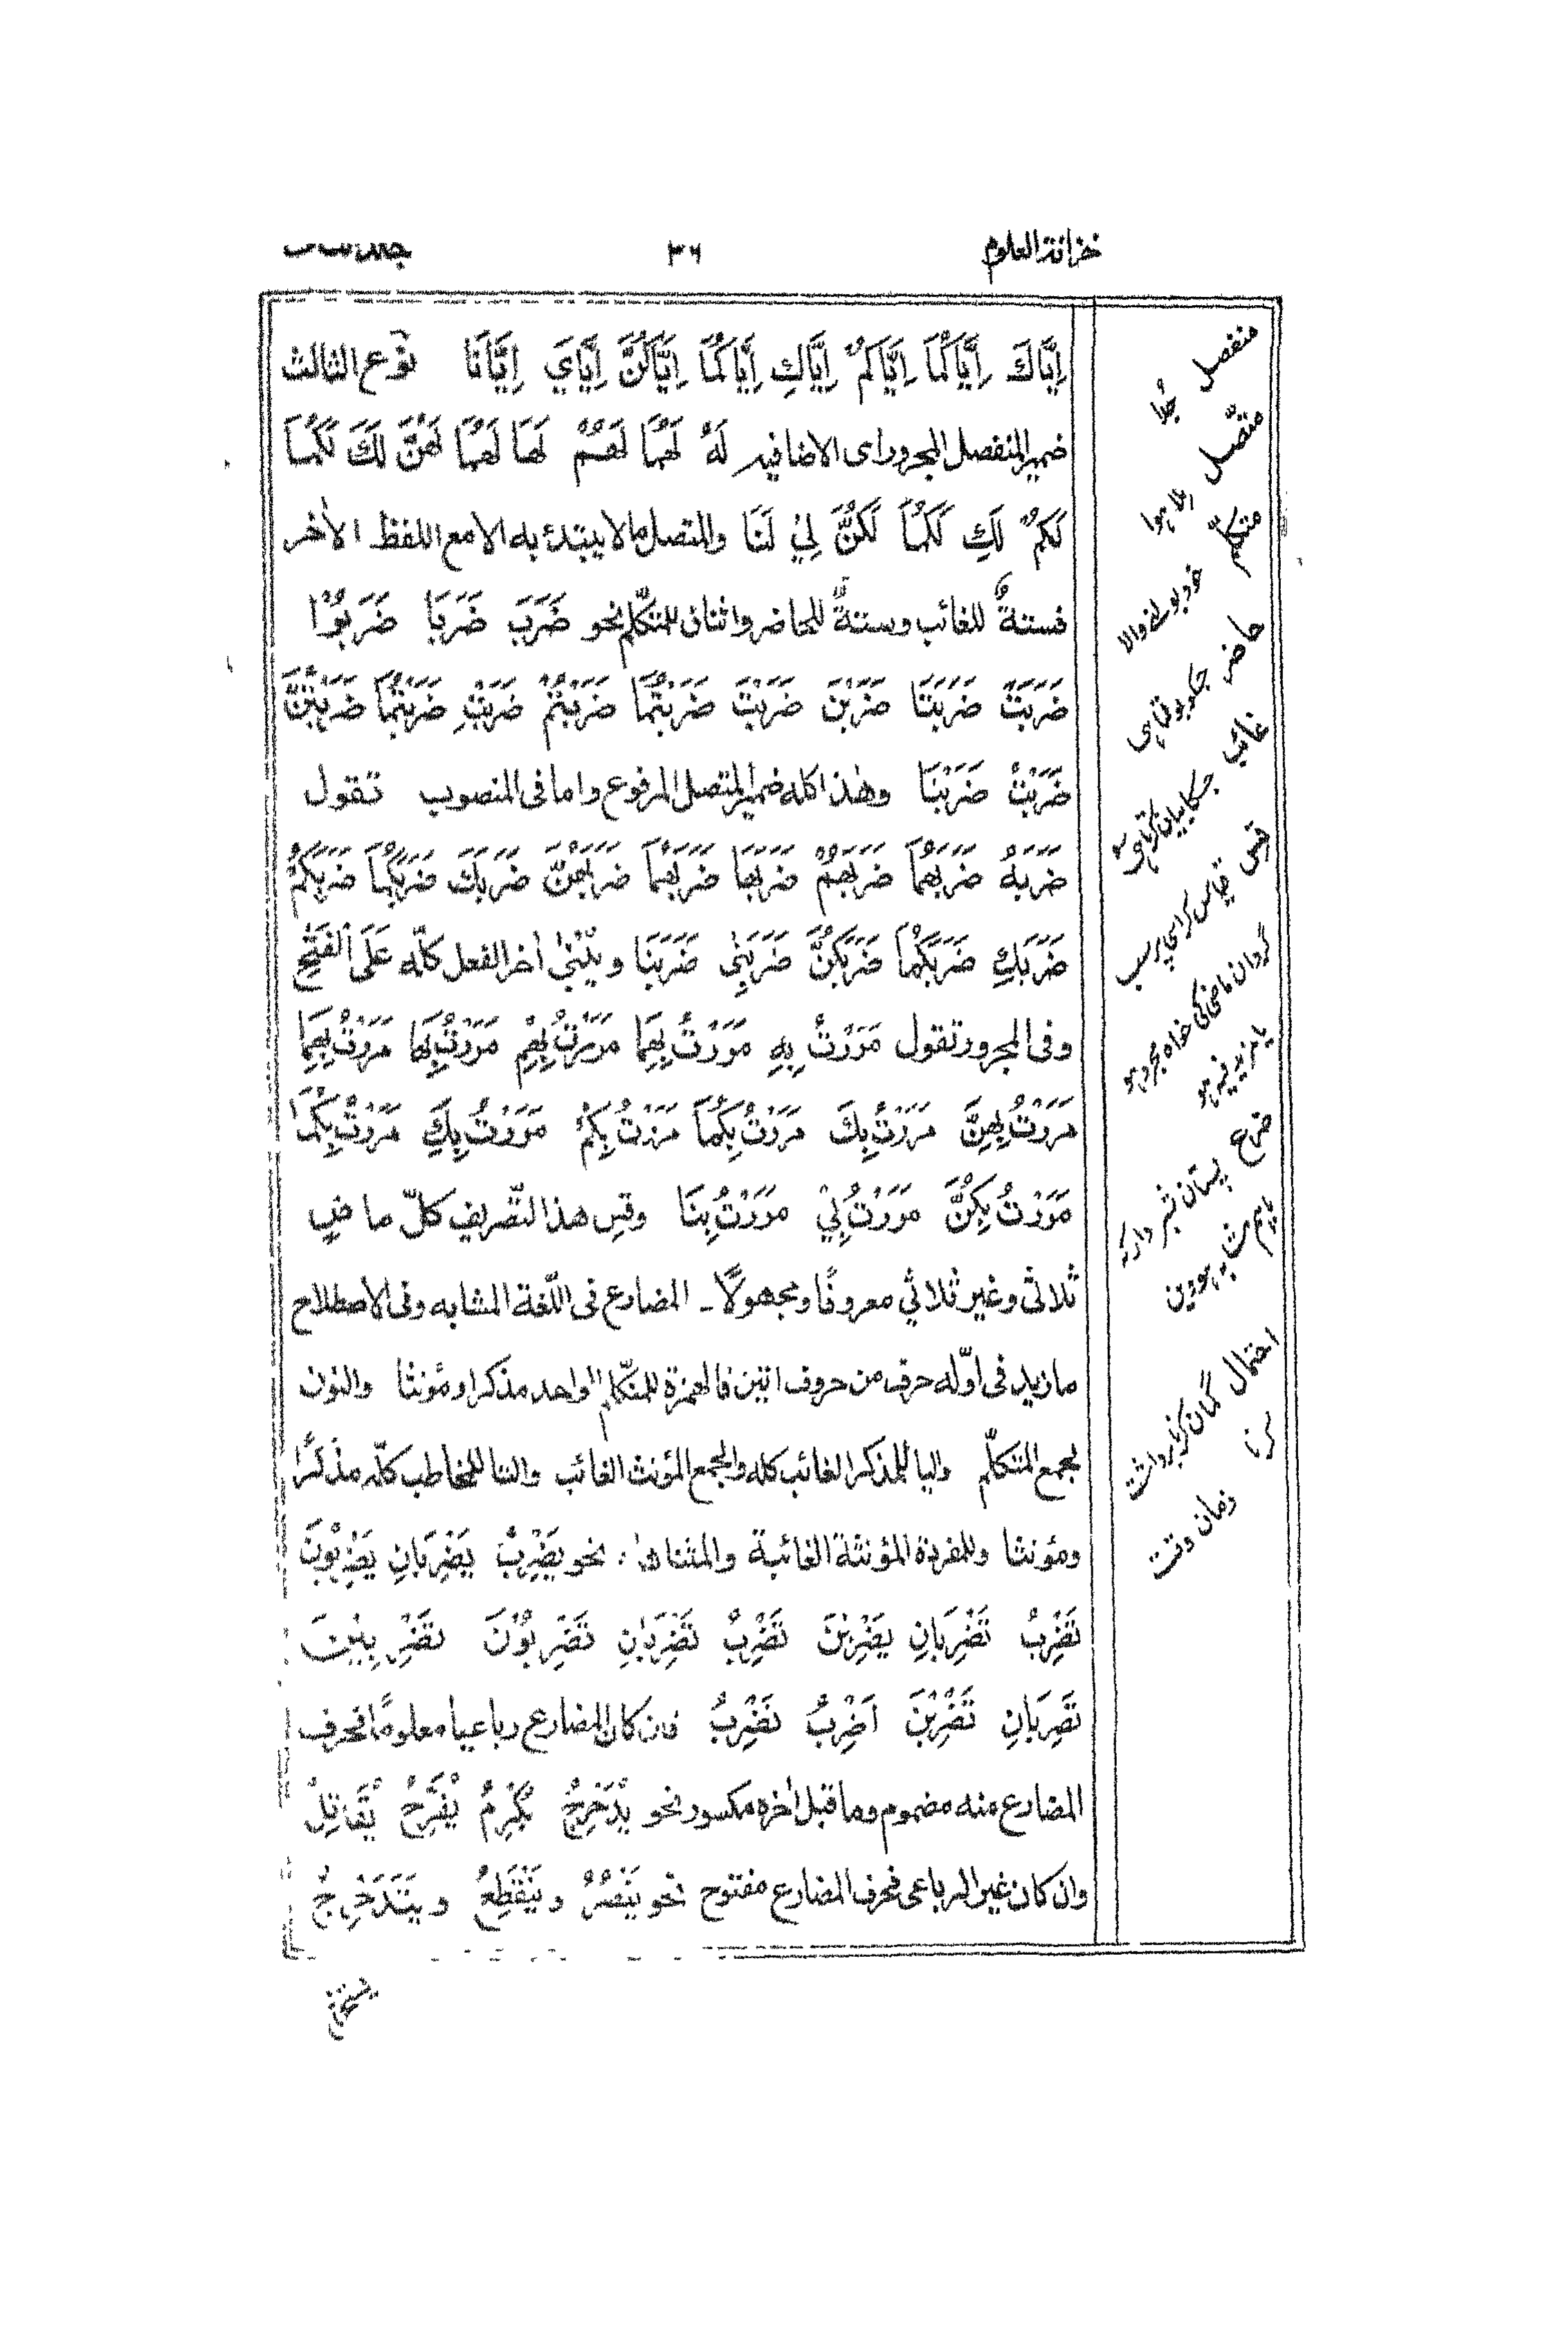 خزانة العلوم
٣٦
اِيَّاكَ اِيَّاكُمَا اِيَّاكُمْ اِيَّاكِ اِيَّاكُمَا اِيَّاكُنَّ اِيَّايَ اِيَّانَا نوع الثالث
ضمير المنفصل المجرور اى الاضافيه لَهُ لَهُمَا لَهُمْ لَهَا لَهُمَا لَهُنَّ لَكَ لَكُمَا
لَكُمْ لَكِ لَكُمَا لَكُنَّ لِيْ لَنَا والمتصل مالا يبتدئ به الا مع اللفظ الأخر
فستةٌ للغائب وستةٌ للحاضر واثنان للمتكلّم نحو ضَرَبَ ضَرَبَا ضَرَبُوْا
ضَرَبَتْ ضَرَبَتَا ضَرَبْنَ ضَرَبْتَ ضَرَبْتُمَا ضَرَبْتُمْ ضَرَبْتِ ضَرَبْتُمَا ضَرَبْتُنَّ
ضَرَبْتُ ضَرَبْنَا وهٰذا كله ضمير المتصل المرفوع واما فى المنصوب تقول
ضَرَبَهُ ضَرَبَهُمَا ضَرَبَهُمْ ضَرَبَهَا ضَرَبَهُمَا ضَرَبَهُنَّ ضَرَبَكَ ضَرَبَكُمَا ضَرَبَكُمْ
ضَرَبَكِ ضَرَبَكُمَا ضَرَبَكُنَّ ضَرَبَنِى ضَرَبَنَا ويُبْنىٰ أخر الفعل كلّه عَلَى الْفَتْحِ
وفى المجرور تقول مَرَرْتُ بِهِ مَرَرْتُ بِهِمَا مَرَرْتُ بِهِمْ مَرَرْتُ بِهَا مَرَرْتُ بِهِمَا
مَرَرْتُ بِهِنَّ مَرَرْتُ بِكَ مَرَرْتُ بِكُمَا مَرَرْتُ بِكُمْ مَرَرْتُ بِكِ مَرَرْتُ بِكُمَا
مَرَرْتُ بِكُنَّ مَرَرْتُ بِيْ مَرَرْتُ بِنَا وقِس هذا التّصريف كلّ ماضٍ
ثلاثى وغير ثلاثي معروفًا ومجهولًا ـ المضارع فى اللّغة المشابه وفى الأصطلاح
مازيد فى اوّله حرف من حروف اتين فالهمزة للمتكلم الواحد مذكرا ومؤنثا والنون
لجمع المتكلّم واليا للمذكر الغائب كله والجمع المؤنث الغائب والتا للمخاطب كلّه مذكرًا
ومؤنثا وللمفردة المؤنثة الغائبة والمثناها نحو يَضْرِبُ يَضْرِبَانِ يَضْرِبُوْنَ
تَضْرِبُ تَضْرِبَانِ يَضْرِبْنَ تَضْرِبُ تَضْرِبَانِ تَضْرِبُوْنَ تَضْرِبِيْنَ
تَضْرِبَانِ تَضْرِبْنَ اَضْرِبُ نَضْرِبُ فان كان المضارع رباعيا معلومًا فحرف
المضارع منه مضموم وما قبل أخره مكسور نحو يُدَحْرِجُ يُكْرِمُ يُفَرِّحُ يُقَاتِلُ
وان كان غير الرباعى فحرف المضارع مفتوح نحو يَنْصُرُ و يَنْقَطِعُ و يَتَدَحْرَجُ
منفصل جُدا
متّصل ملا ہوا
متكلّم خود بولنے والا
حاضر جسكو بولتا ہی
غائب جسكا بيان كرتا ہى
قِس قياس كر اسى پر سب
گردان ماضى كى خواه مجرد ہو
يا مزيد فيہ ہو
ضرع پستان شير دار كہ
باہم مشابہ ہووين
احتمال گمان كرنا برداشت
كرنا
زمان وقت